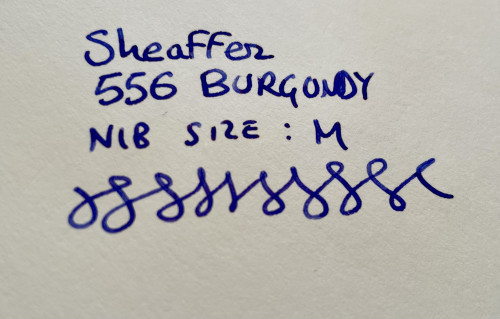 Sheaffer
556 BURGONDY
NIB SIZE : M